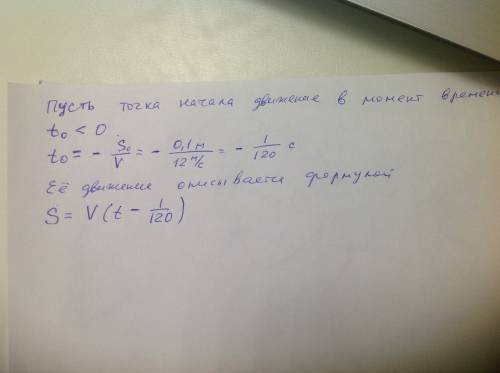 Пусть точка начала движение в момент времени
t₀ < 0.
t₀ = - S₀/V = - 0,1 м/12 м/с = - 1/120 с
Её движение описывается формулой
S = V(t - 1/120)